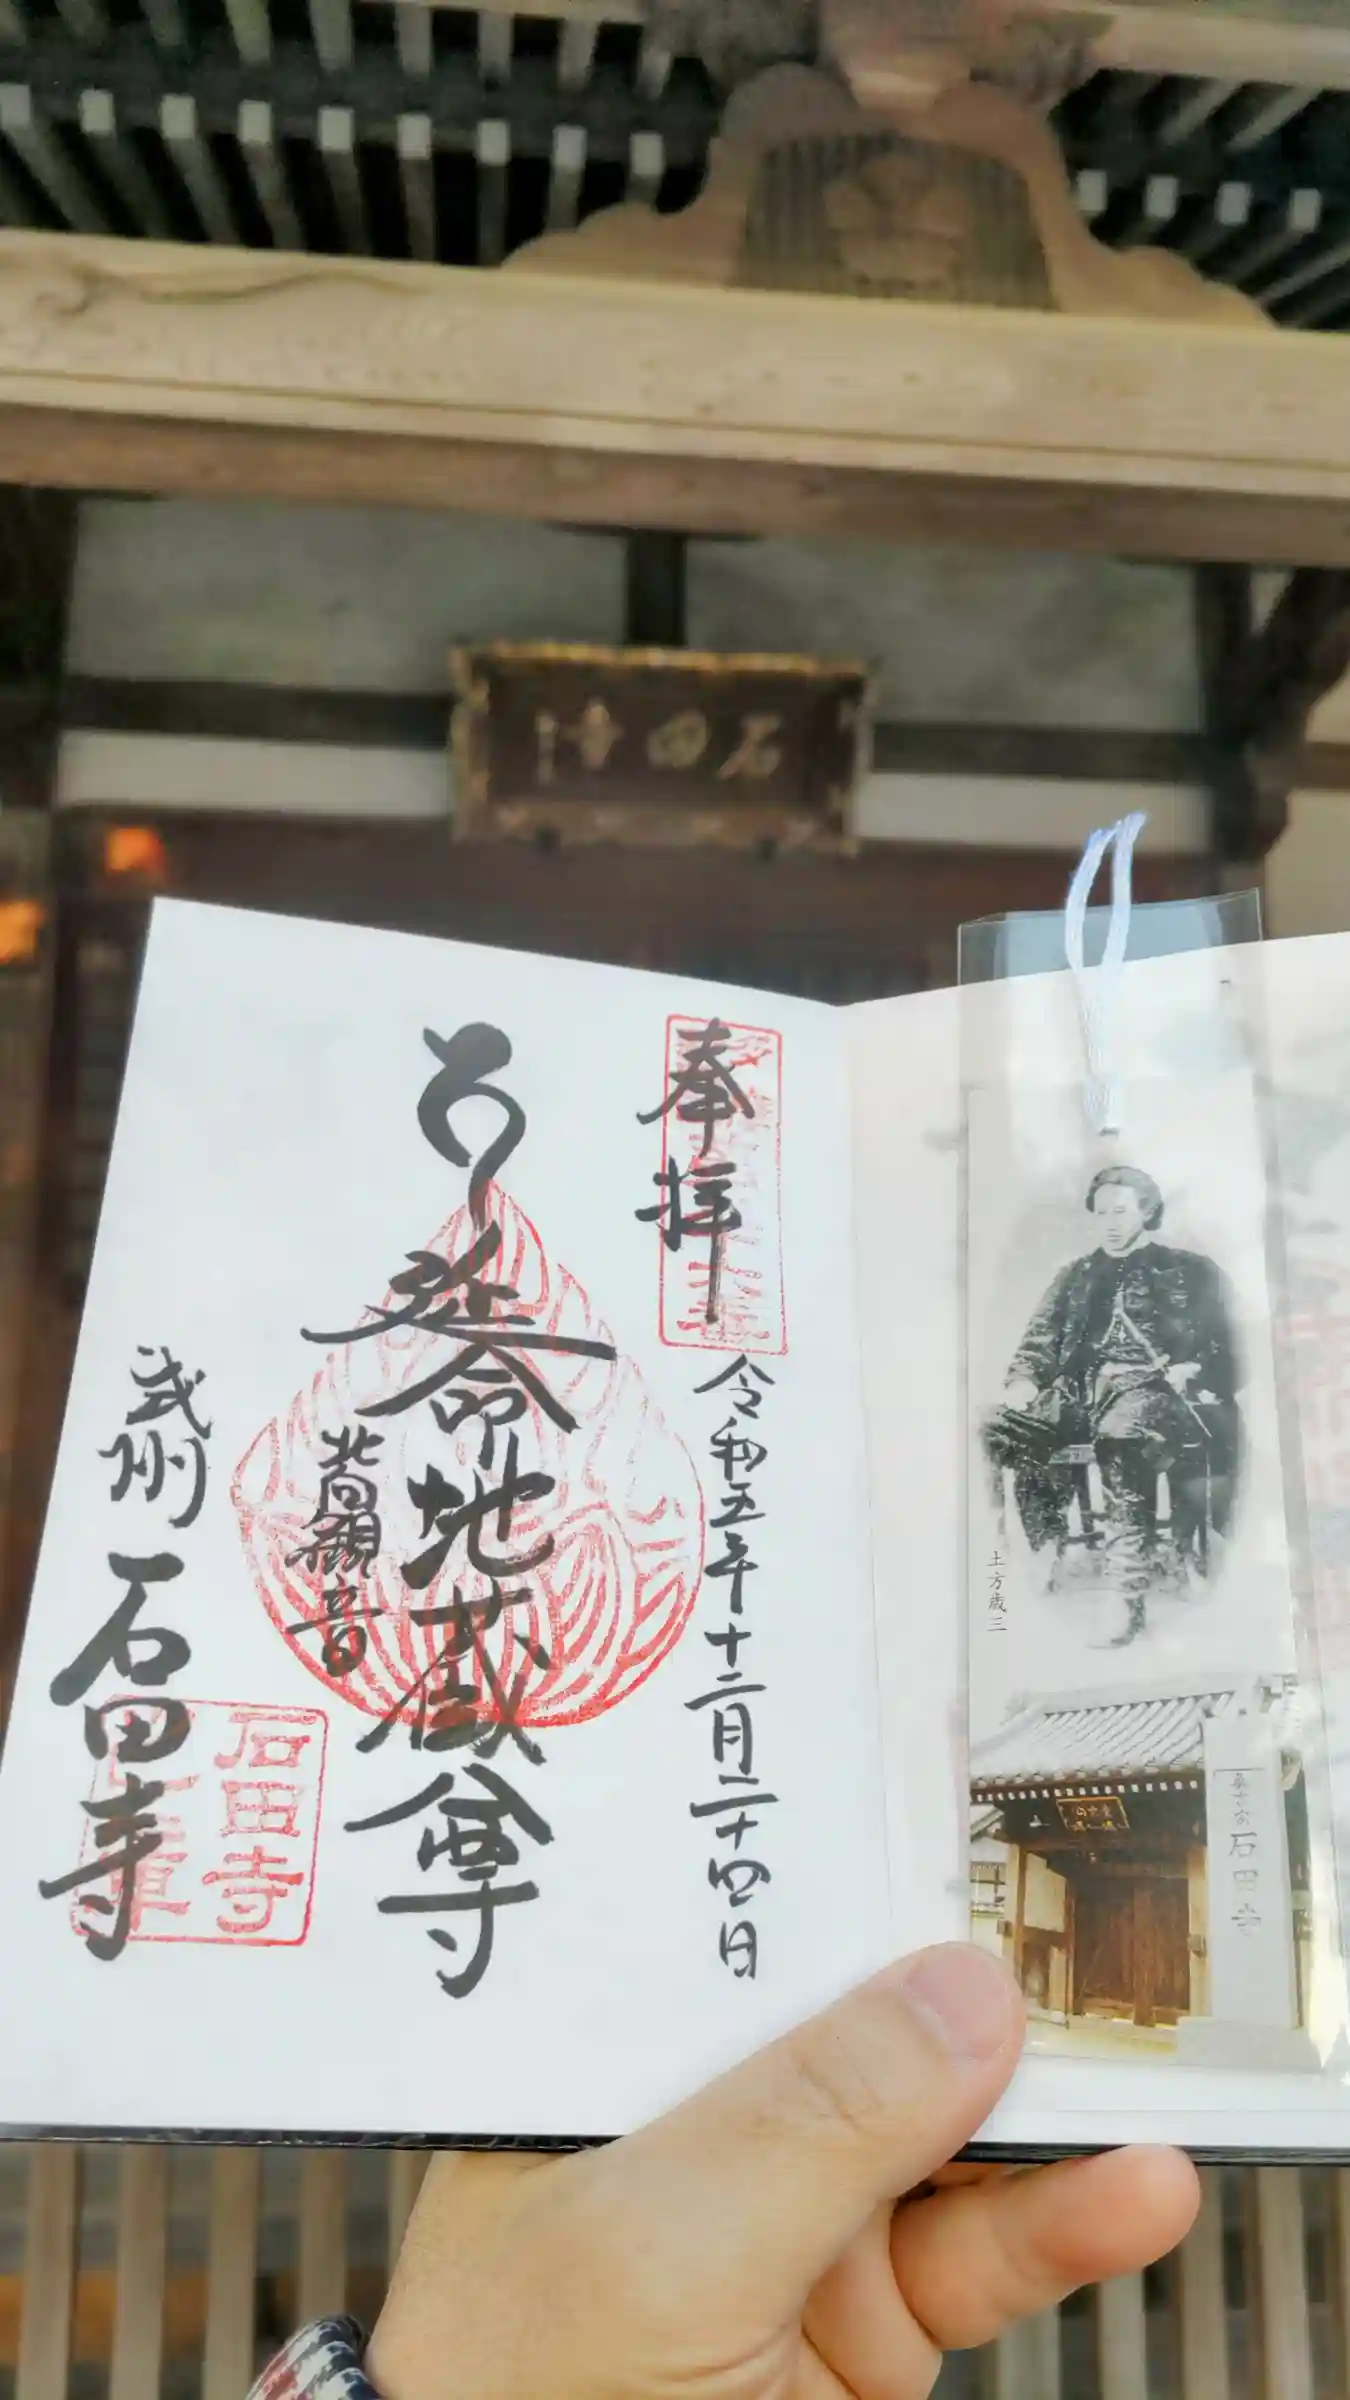 石田寺
奉拝
令和五年十二月二十四日
延命地蔵尊
北向観音
武州
石田寺
石田寺
土方歳三
石田寺